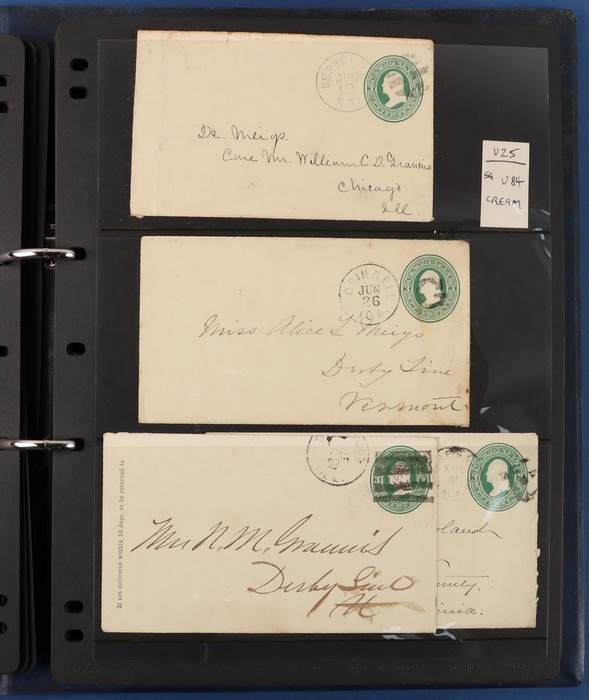 DERBY
JUN
19
VT.
U.S. POSTAGE
Dr. Meigs.
Care Mr. William C. D. Grannis
Chicago
Ill.
U25
SG U84
CREAM
GRINNELL
JUN
26
IOA.
U.S. POSTAGE
Miss Alice L Meigs
Derby Line
Vermont
If not delivered within 10 days, to be returned to
ILL.
Mrs N. M. Grannis
Derby Line
Vt
31